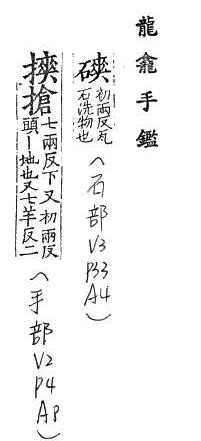 龍龕手鑑
初兩反瓦
石洗物也
(石部 V3 P33 A4)
搶
七兩反下又初兩反
頭丨地也又七羊反二
(手部 V2 P4 A8)